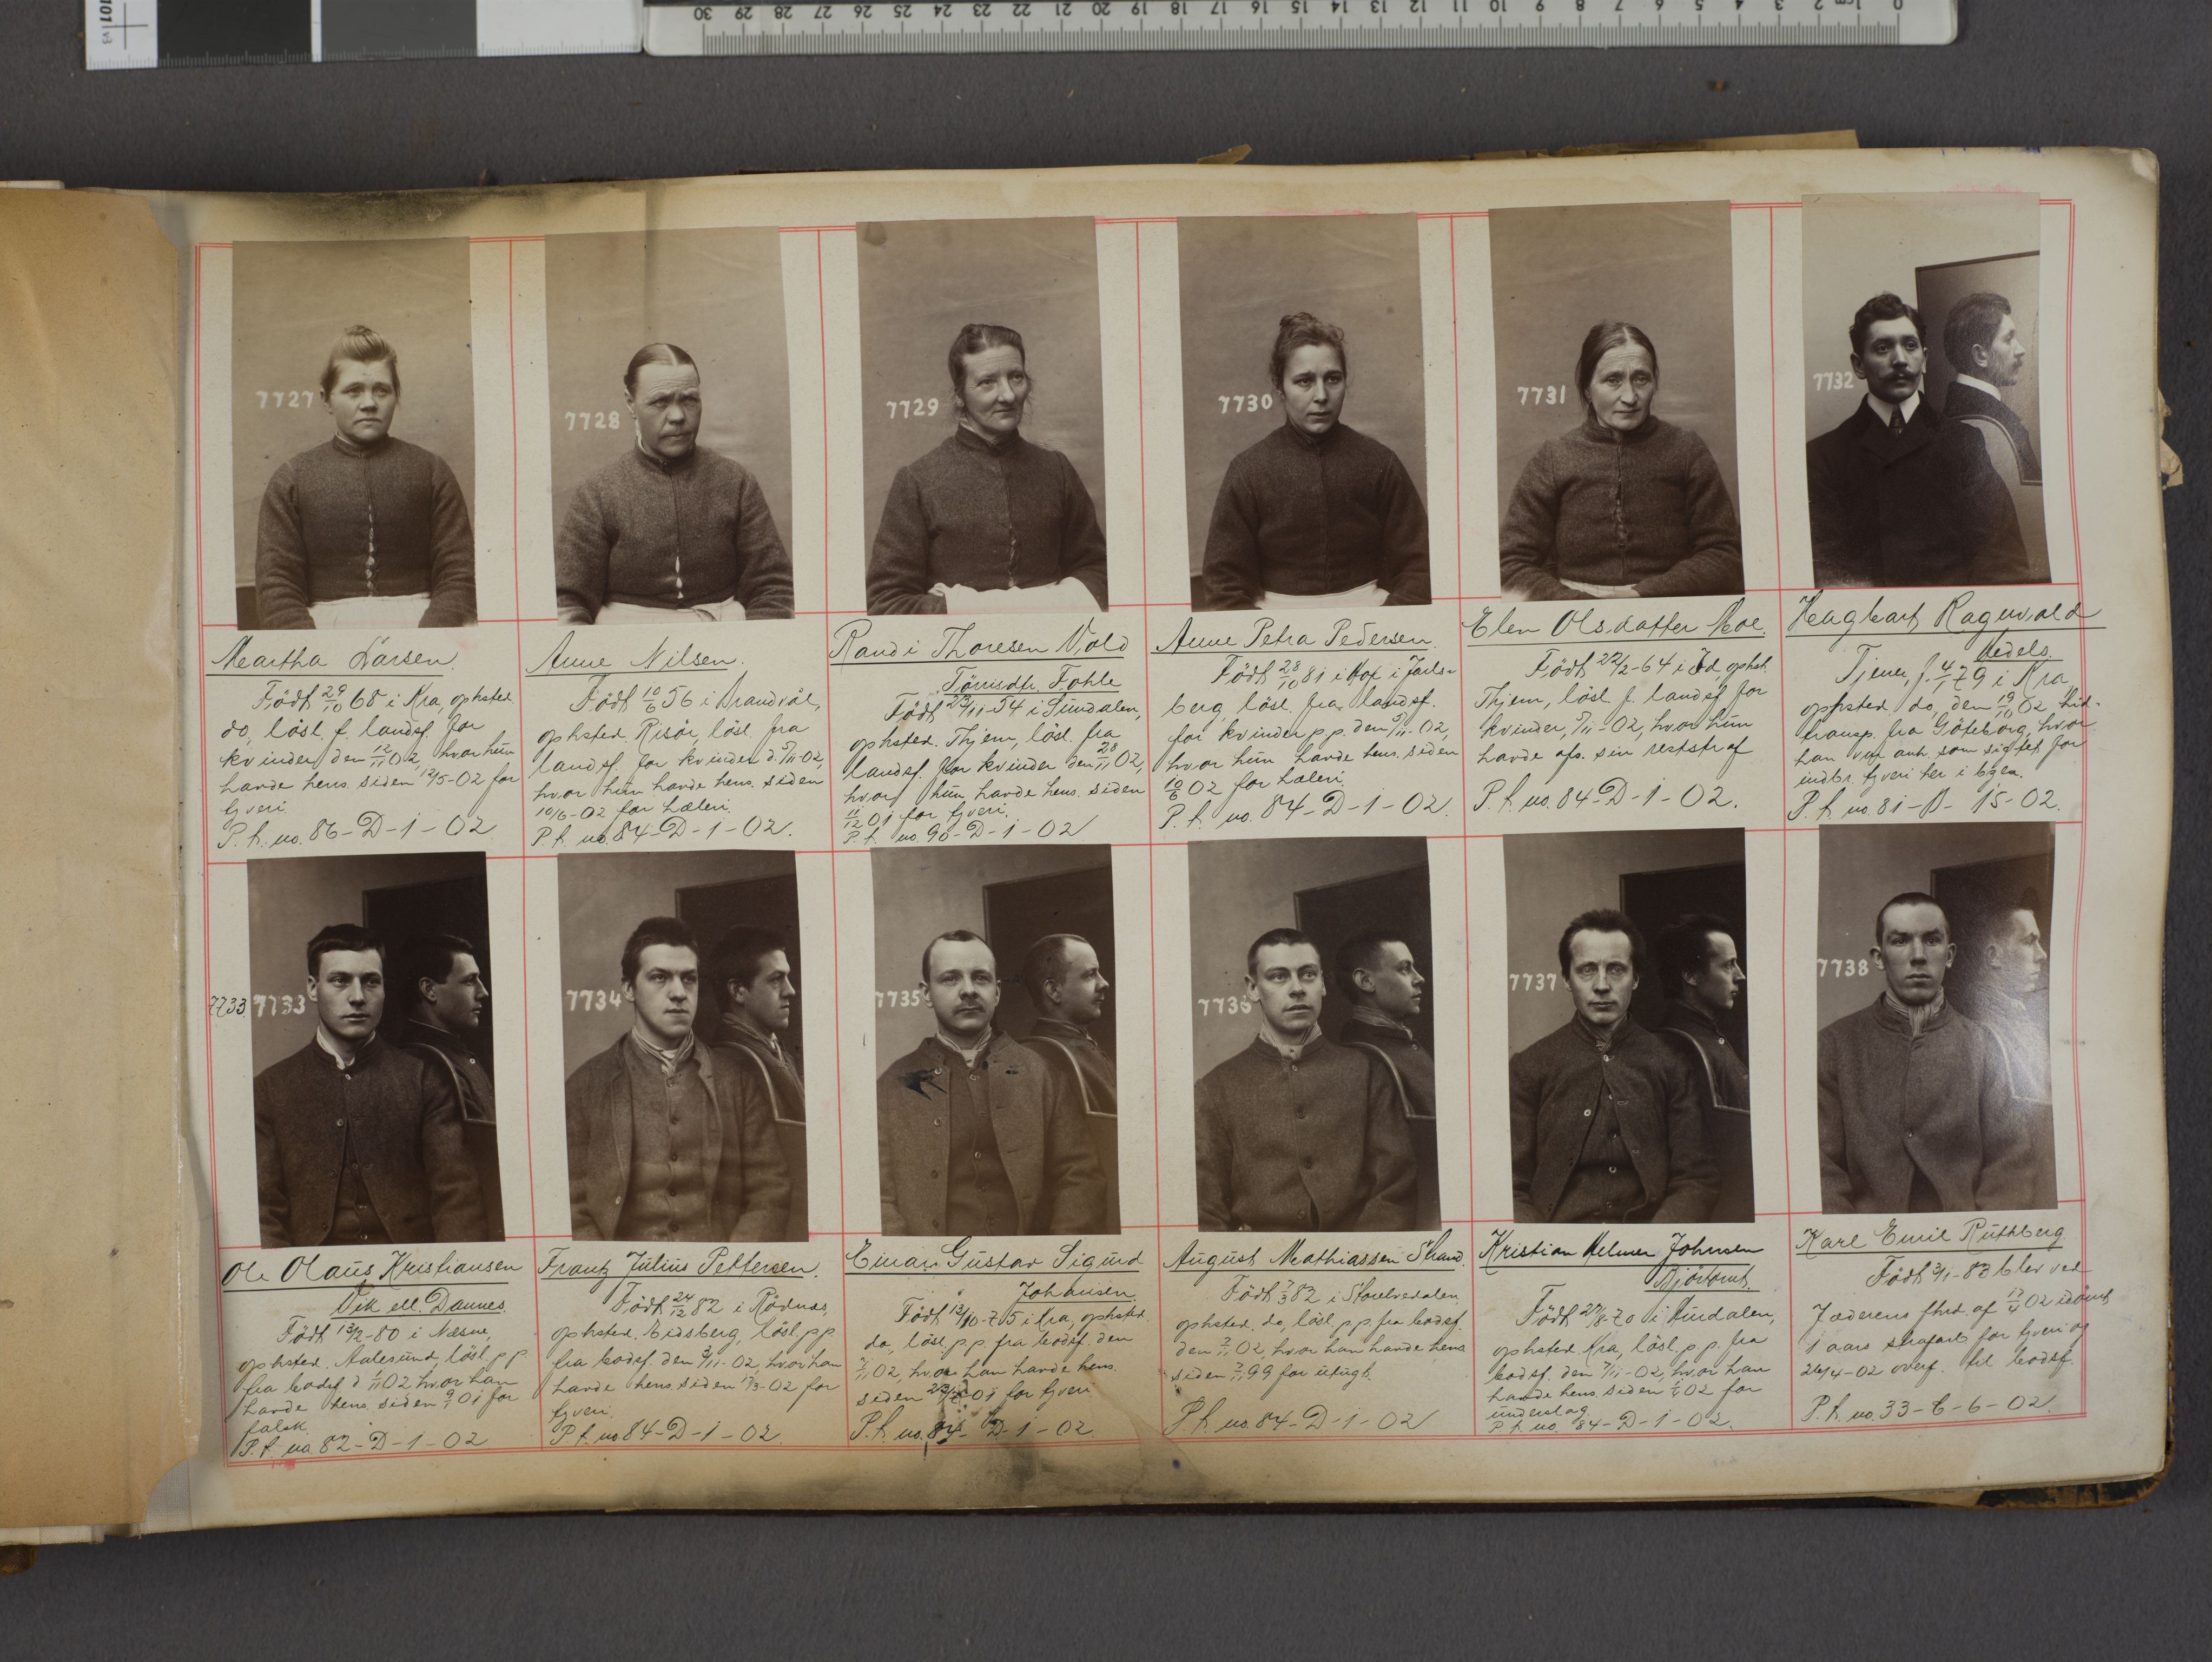 101 v3
0 1 cm 2 3 4 5 6 7 8 9 10 11 12 13 14 15 16 17 18 19 20 21 22 23 24 25 26 27 28 29 30
7727
Martha Larsen.
Født 29/10 68 i Kra, ophsted
do, løsl. f. landsf. for
kvinder den 12/11 02, hvor hun
havde hens. siden 12/5-02 for
tyveri
P. f. no. 86-D-1-02
7728
Anne Nilsen.
Født 10/6 56 i Brandvål,
ophsted. Risør, løsl. fra
landsf. for kvinder d. 5/11-02,
hvor hun havde hens. siden
10/6-02 for hæleri.
P. f. no. 84-D-1-02.
7729
Randi Thoresen Vold
Tönisdtr. Fohle
Født 23/11-54 i Sundalen,
ophsted. Thjem, løsl. fra
landsf. for kvinder den 28/11 02,
hvor hun havde hens. siden
11/12 01 for tyveri.
P. f. no. 90-D-1-02
7730
Anne Petra Pedersen.
Født 28/10 81 i Hof i Jarls-
berg, løsl. fra landsf.
for kvinder p.p. den 5/11-02,
hvor hun havde hens. siden
10/6 02 for hæleri
P. f. no. 84-D-1-02.
7731
Elen Olsdatter Moe.
Født 22/2-64 i Id, ophst.
Thjem, løsl. f. landsf. for
kvinder, 5/11-02, hvor hun
havde afs. sin reststraf
P. f. no. 84-D-1-02.
7732
Hagbart Ragnvald
Nedels.
Tjener, f. 4/1 79 i Kra,
ophsted do, den 19/10 02 hid-
transp. fra Göteborg, hvor
han var anh. som sigtet for
indbr. tyveri her i byen.
P. f. no. 81-B-15-02.
7733 7733
Ole Olaus Kristiansen
Vik ell. Dannes.
Født 13/2-80 i Næsne,
ophsted. Aalesund, løsl. p.p.
fra bodsf. d. 1/11 02 hvor han
havde hens. siden 9/7 01 for
falsk
P. f. no. 82-D-1-02
7734
Frantz Julius Pettersen.
Født 24/12 82 i Rödnæs,
ophsted. Eidsberg, løsl. p.p.
fra bodsf. den 3/11-02, hvor han
havde hens. siden 17/3-02 for
tyveri
P. f. no. 84-D-1-02.
7735
Einar Gustav Sigurd
Johansen.
Født 13/10-75 i Kra, ophsted.
do, løsl. p.p. fra bodsf. den
7/11 02, hvor han havde hens.
siden 01 for tyveri
P. f. no. 84-D-1-02.
7736
August Mathiassen Strand.
Født 7/3 82 i Storelvedalen,
ophsted. do, løsl. p.p. fra bodsf.
den 7/11 02, hvor han havde hens
siden 7/7 99 for utugt.
P. f. no. 84-D-1-02
7737
Kristian Helmer Johnsen
Bjørtomt.
Født 27/8-70 i Hurdalen,
ophsted. Kra, løsl. p.p. fra
bodsf. den 7/11-02, hvor han
havde hens. siden 1/4 02 for
underslag
P. f. no. 84-D-1-02.
7738
Karl Emil Ruthberg
Født 3/1-83 blev ved
Jæderens fhrd. af 17/4 02 idømt
1 aars strafarb. for tyveri og
26/4-02 overf. til bodsf.
P. f. no. 33-C-6-02.